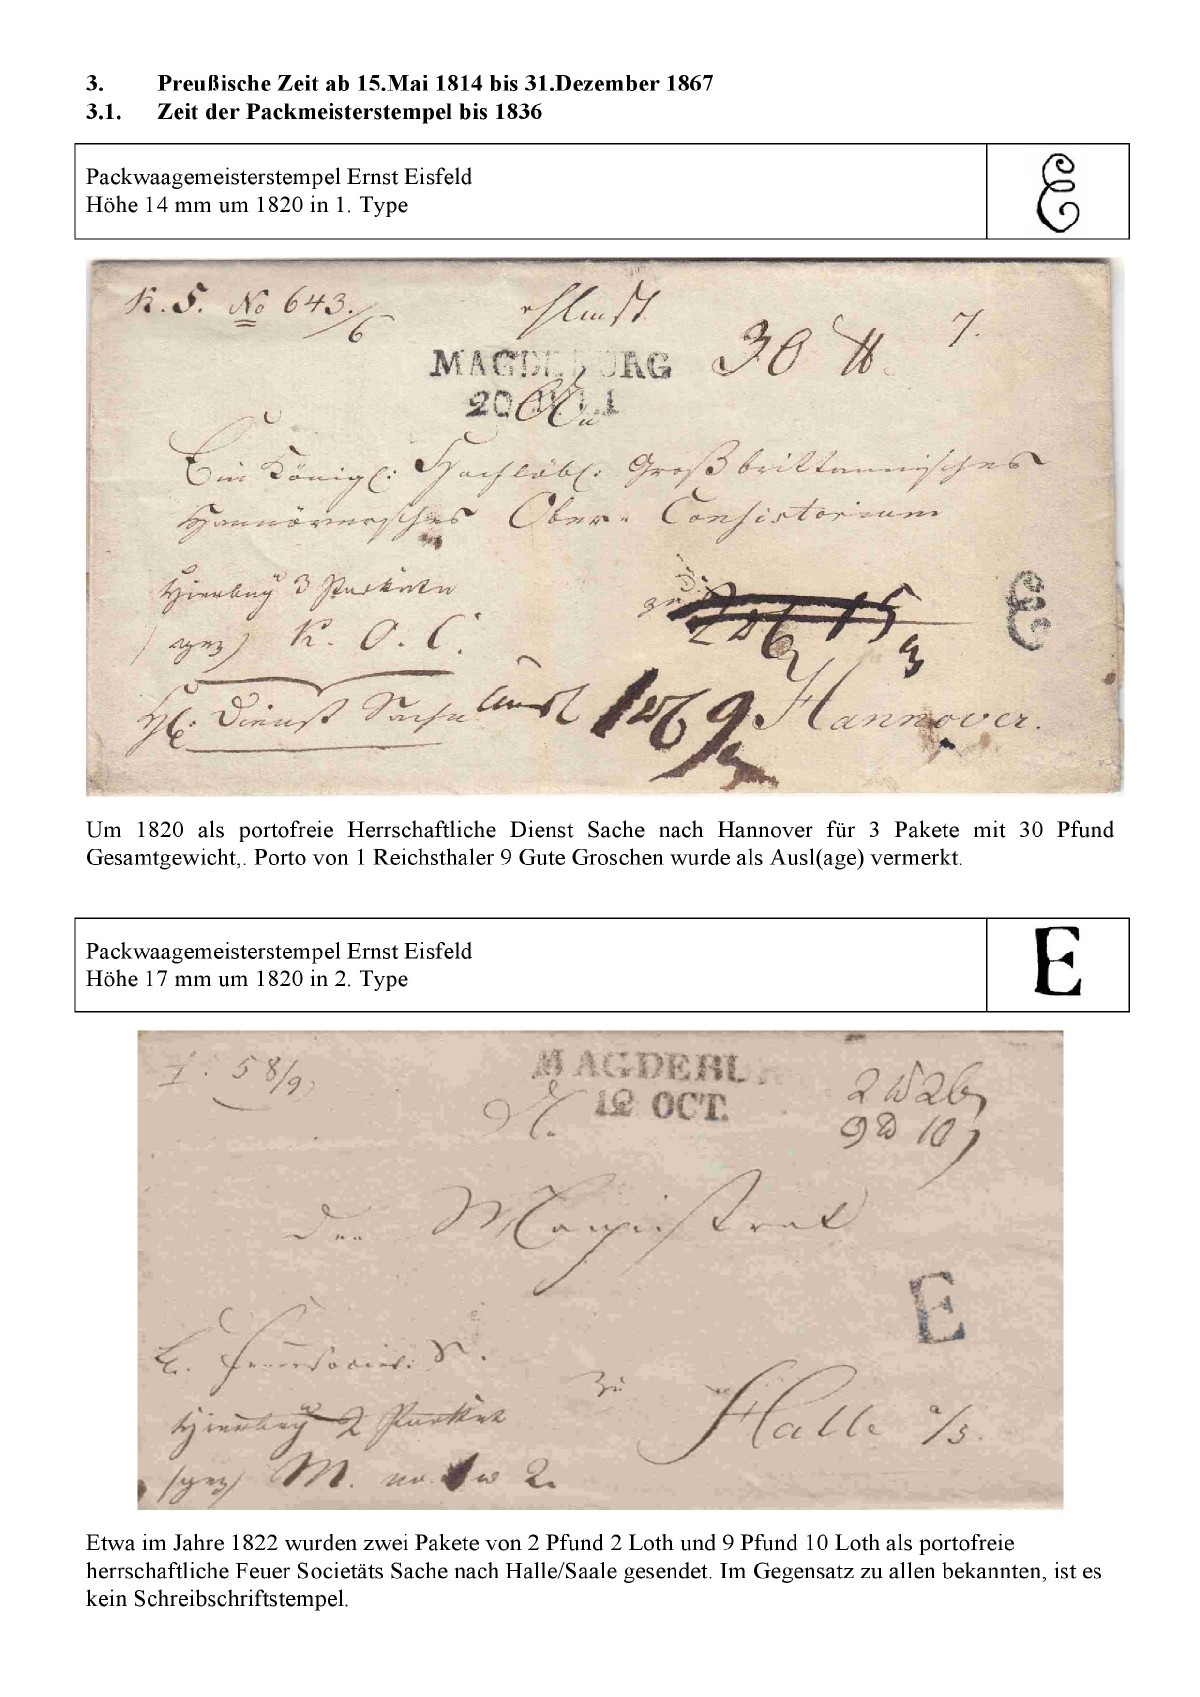 3. Preußische Zeit ab 15.Mai 1814 bis 31.Dezember 1867
3.1. Zeit der Packmeisterstempel bis 1836
Packwaagemeisterstempel Ernst Eisfeld
Höhe 14 mm um 1820 in 1. Type
E
K. S. No 643.
6
30 ℔. 7.
MAGDEBURG
20 JULI
Ein Königl: Hochlöbl: Großbrittannisches
Hannöversches Ober-Consistorium
Hierbey 3 Packete
E
K. O. C.
Dienst Sache
1 9
Hannover.
Um 1820 als portofreie Herrschaftliche Dienst Sache nach Hannover für 3 Pakete mit 30 Pfund
Gesamtgewicht,. Porto von 1 Reichsthaler 9 Gute Groschen wurde als Ausl(age) vermerkt.
Packwaagemeisterstempel Ernst Eisfeld
Höhe 17 mm um 1820 in 2. Type
E
58/9
MAGDEBU
12 OCT.
2 ℔ 2
9 ℔ 10
den Magistrat
E
zu
Hierbey 2 Packet
Halle a/S.
M. no. 2.
Etwa im Jahre 1822 wurden zwei Pakete von 2 Pfund 2 Loth und 9 Pfund 10 Loth als portofreie
herrschaftliche Feuer Societäts Sache nach Halle/Saale gesendet. Im Gegensatz zu allen bekannten, ist es
kein Schreibschriftstempel.